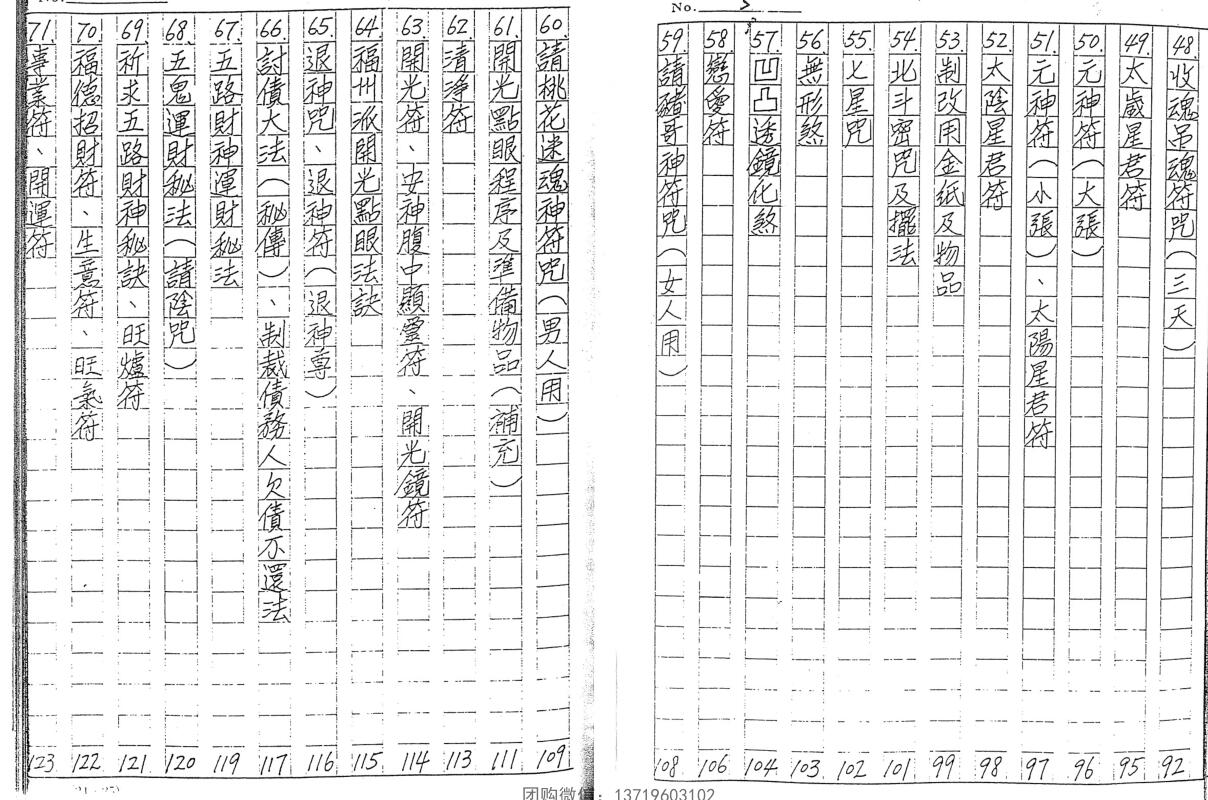 No. 3
48. 收魂吊魂符咒(三天) 92
49. 太歲星君符 95
50. 元神符(大張) 96
51. 元神符(小張)、太陽星君符 97
52. 太陰星君符 98
53. 制改用金紙及物品 99
54. 北斗密咒及擺法 101
55. 七星咒 102
56. 無形煞 103
57. 凹凸透鏡化煞 104
58. 戀愛符 106
59. 請豬哥神符咒(女人用) 108
60. 請桃花迷魂神符咒(男人用) 109
61. 開光點眼程序及準備物品(補充) 111
62. 清淨符 113
63. 開光符、安神腹中顯靈符、開光鏡符 114
64. 福州派開光點眼法訣 115
65. 退神咒、退神符(退神尊) 116
66. 討債大法(秘傳)、制裁債務人欠債不還法 117
67. 五路財神運財秘法 119
68. 五鬼運財秘法(請陰咒) 120
69. 祈求五路財神秘訣、旺爐符 121
70. 福德招財符、生意符、旺氣符 122
71. 事業符、開運符 123
团购微信：13719603102